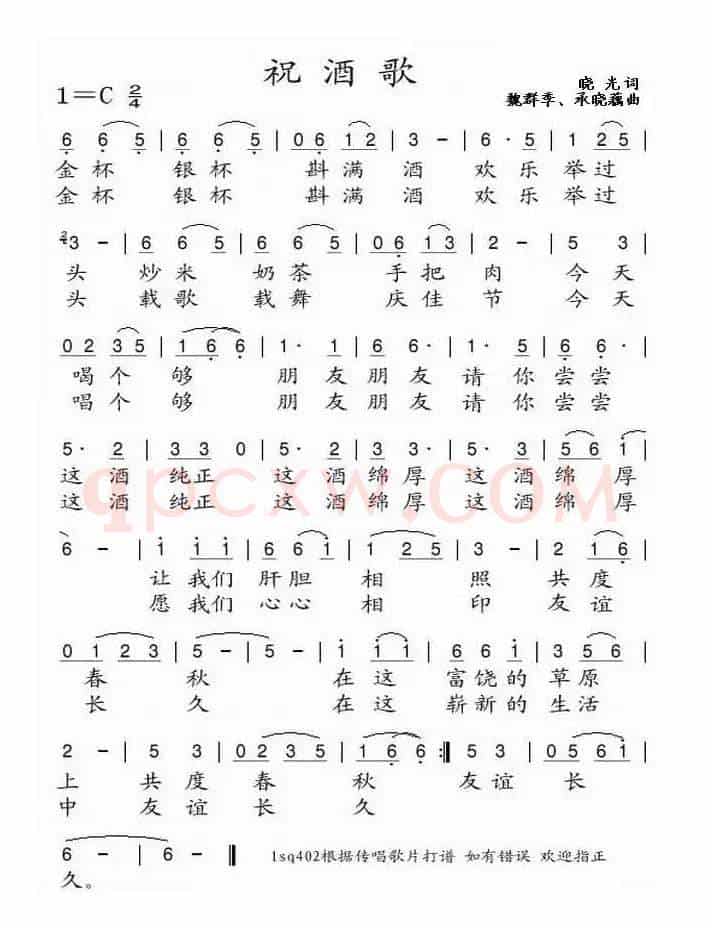 祝 酒 歌
1=C 2/4
晓 光 词
魏群季、承晓藕曲
6 6 5 | 6 6 5 | 0 6 1 2 | 3 - | 6· 5 | 1 2 5 |
金 杯 银 杯 斟 满 酒 欢 乐 举 过
金 杯 银 杯 斟 满 酒 欢 乐 举 过
3 - | 6 6 5 | 6 6 5 | 0 6 1 3 | 2 - | 5 3 |
头 炒 米 奶 茶 手 把 肉 今 天
头 载 歌 载 舞 庆 佳 节 今 天
0 2 3 5 | 1 6 6 | 1· 1 | 6 6· | 1· 5 | 6 6· |
喝 个 够 朋 友 朋 友 请 你 尝 尝
唱 个 够 朋 友 朋 友 请 你 尝 尝
5· 2 | 3 3 0 | 5· 2 | 3 3· | 5· 2 | 5 6 1 |
这 酒 纯 正 这 酒 绵 厚 这 酒 绵 厚
这 酒 纯 正 这 酒 绵 厚 这 酒 绵 厚
qpcxw.COM
6 - | 1 1 1 | 6 6 1 | 1 2 5 | 3 - | 2 1 6 |
让 我 们 肝 胆 相 照 共 度
愿 我 们 心 心 相 印 友 谊
0 1 2 3 | 5 - | 5 - | 1 1 1 | 6 6 1 | 3 5 6 |
春 秋 在 这 富 饶 的 草 原
长 久 在 这 崭 新 的 生 活
2 - | 5 3 | 0 2 3 5 | 1 6 6 :‖ 5 3 | 0 5 6 1 |
上 共 度 春 秋 友 谊 长
中 友 谊 长 久
6 - | 6 - ‖ 1sq402根据传唱歌片打谱 如有错误 欢迎指正
久。